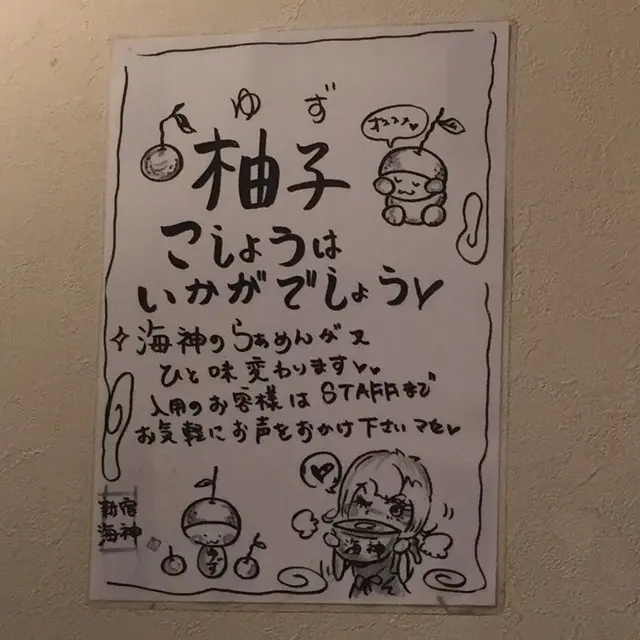 ゆず
柚子
こしょうは
いかがでしょう♡
海神のらぁめんが又
ひと味変わります♡♡
入用のお客様はSTAFFまで
お気軽にお声をおかけ下さいマセ♡
新宿
海神
ゆず
海神